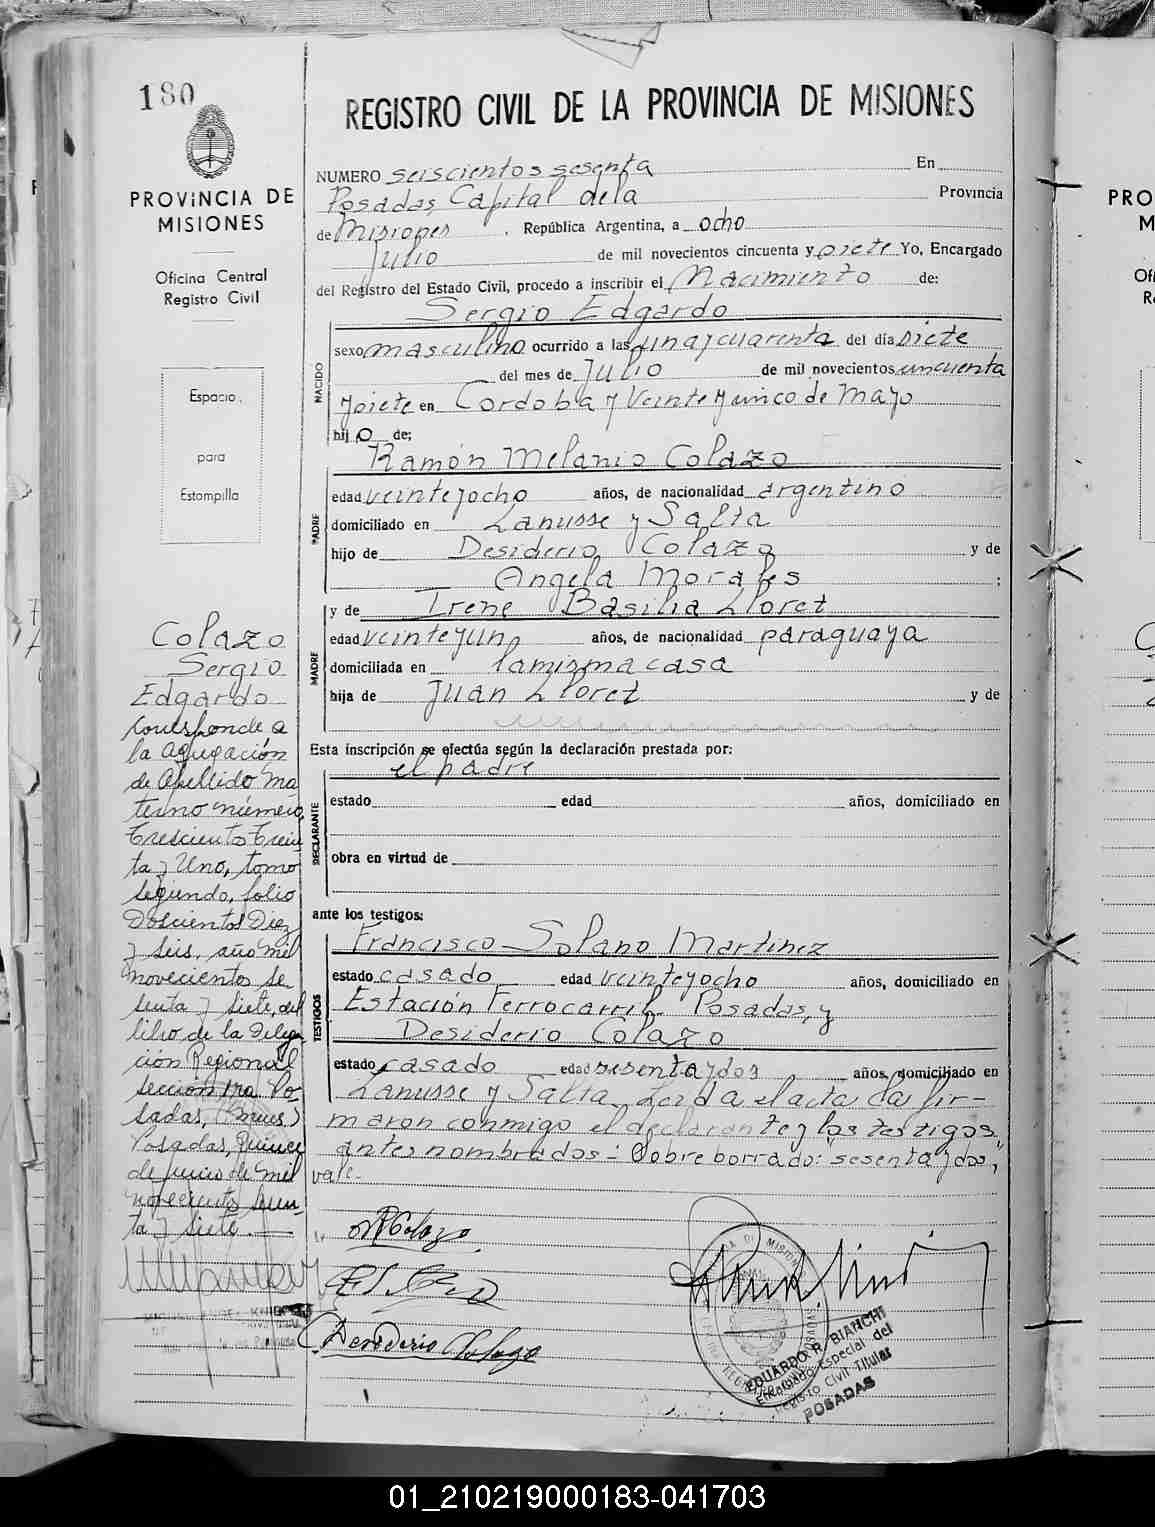 180
PROVINCIA DE
MISIONES
Oficina Central
Registro Civil
Espacio
para
Estampilla
Colazo
Sergio
Edgardo
Corresponde a
la agregación
de Apellido Ma
terno número
Trescientos Trein
ta y Uno, tomo
segundo, folio
Doscientos Diez
y seis, año mil
novecientos se
senta y siete, del
libro de la Delega
ción Regional
sección 1ra. Po
sadas, (Mnes)
Posadas, Quince
de junio de mil
novecientos sesen
ta y siete.
REGISTRO CIVIL DE LA PROVINCIA DE MISIONES
NUMERO seiscientos sesenta En
Posadas, Capital de la Provincia
de Misiones, República Argentina, a ocho
Julio de mil novecientos cincuenta y siete Yo, Encargado
del Registro del Estado Civil, procedo a inscribir el Nacimiento de:
Sergio Edgardo
NACIDO
sexo masculino ocurrido a las una y cuarenta del día siete
del mes de Julio de mil novecientos cincuenta
y siete en Cordoba y Veinte y cinco de Mayo
hijo de:
Ramón Melanio Colazo
PADRE
edad veinte y ocho años, de nacionalidad argentino
domiciliado en Lanusse y Salta
hijo de Desiderio Colazo y de
Angela Morales ;
y de Irene Basilia Lloret
MADRE
edad veinte y un años, de nacionalidad paraguaya
domiciliada en la misma casa
hija de Juan Lloret y de
Esta inscripción se efectúa según la declaración prestada por:
el padre
DECLARANTE
estado edad años, domiciliado en
obra en virtud de
ante los testigos:
Francisco Solano Martinez
TESTIGOS
estado casado edad veinte y ocho años, domiciliado en
Estación Ferrocarril Posadas, y
Desiderio Colazo
estado casado edad sesenta y dos años, domiciliado en
Lanusse y Salta. Leida el acta la fir-
maron conmigo el declarante y los testigos
antes nombrados - Sobre borrado: sesenta y dos,
vale.-
RColazo
Desiderio Colazo
EDUARDO R. BIANCHI
Encargado Especial del
Registro Civil Titular
POSADAS
PRO
M
Of
R
01_210219000183-041703